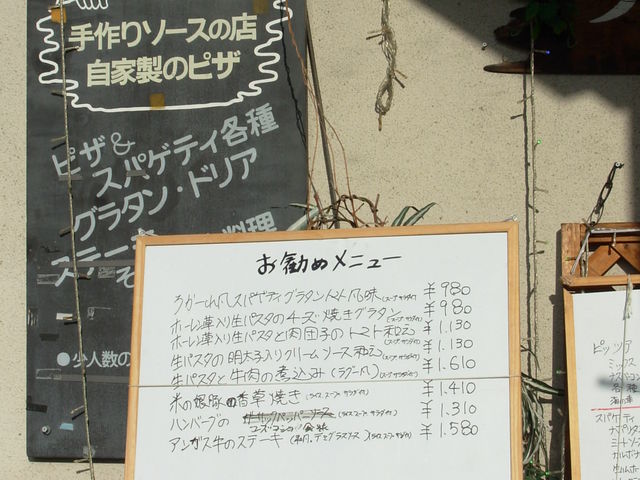 手作りソースの店
自家製のピザ
ピザ&
スパゲティ各種
グラタン・ドリア
ステーキ 料理
そ
●少人数の
お勧めメニュー
スパゲティグラタントマト風味(スープ サラダ付) ¥980
ホーレン草入り生パスタのチーズ焼きグラタン(スープ サラダ付) ¥980
ホーレン草入り生パスタと肉団子のトマト和え(スープ サラダ付) ¥1.130
生パスタの明太子入りクリームソース和え(スープ サラダ付) ¥1.130
生パスタと牛肉の煮込み(ラグー風)(スープ サラダ付) ¥1.610
米の娘豚の香草焼き(ライス スープ サラダ付) ¥1.410
ハンバーグの ガーリックペッパーソース(ライス スープ サラダ付) ¥1.310
アンガス牛のステーキ(和風,デミグラスソース)(ライス スープ サラダ付) ¥1.580
ピッツア
ミックス
各種
スパゲティ
ナポリタン
ミートソース
カルボナ